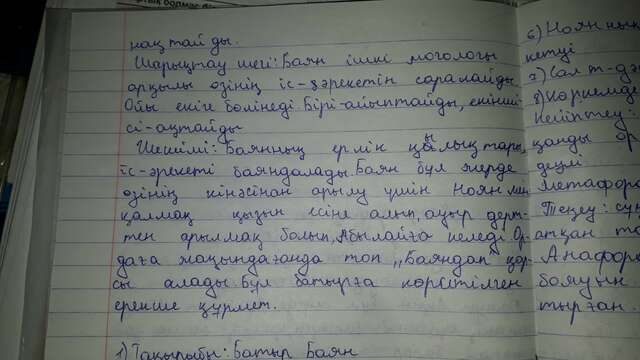 нақтайды.
Шарықтау шегі: Баян ішкі монологы
арқылы өзінің іс-әрекетін саралайды.
Ойы екіге бөлінеді. Бірі-айыптайды, екінші-
сі-ақтайды
Шешімі: Баянның ерлік қылықтары,
іс-әрекеті баяндалады. Баян бұл жерде
өзінің кінәсінан арылу үшін Ноян мен
қалмақ қызын есіне алып, ауыр дерт-
тен арылмақ болып, Абылайға келеді. Ор-
даға жақындағанда топ ,,Баяндап" қар-
сы алады. Бұл батырға көрсетілген
ерекше құрмет.
1) Тақырыбы: Батыр Баян
6) Ноянның
кетуі
7) Салт-дә
8) Көркемде
келіптеу:
қанды ор
деңлі
Метафора
Теңеу: сұң
атқан та
Анафора
бояуын
тырған.